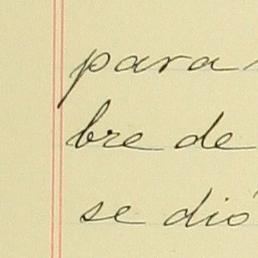 para
bre de
se dió